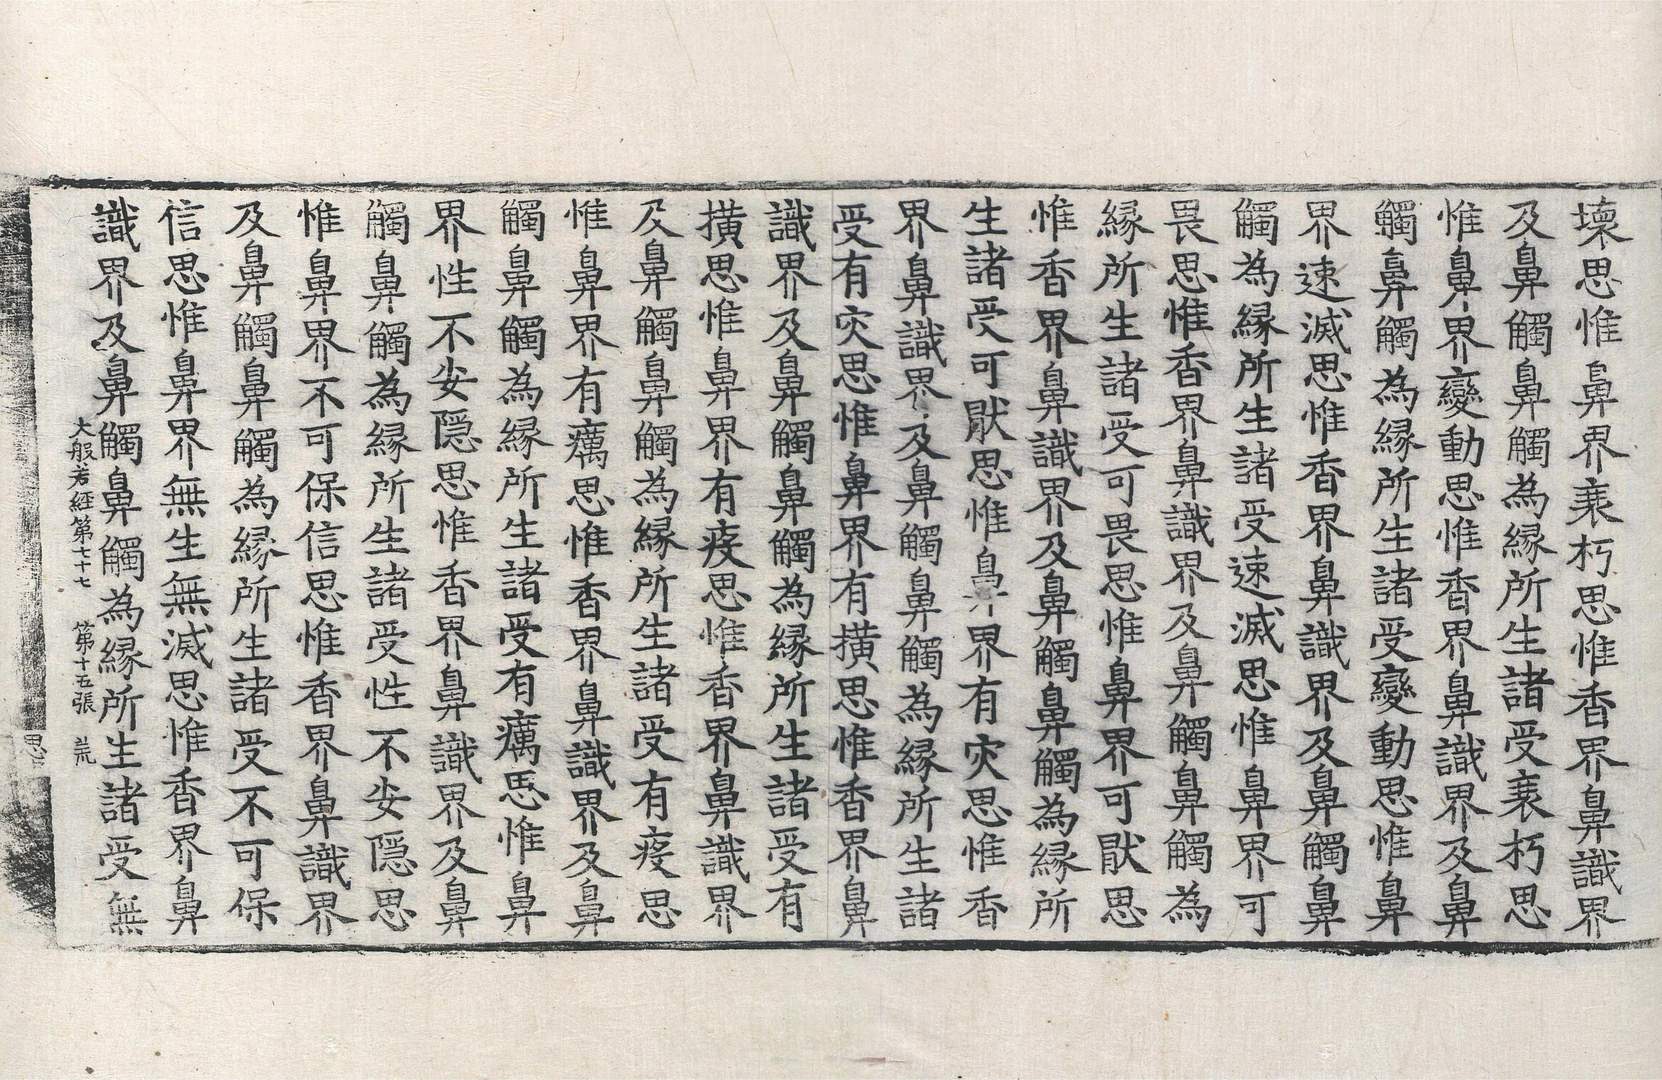 壞思惟鼻界衰朽思惟香界鼻識界
及鼻觸鼻觸為縁所生諸受衰朽思
惟鼻界變動思惟香界鼻識界及鼻
觸鼻觸為縁所生諸受變動思惟鼻
界速滅思惟香界鼻識界及鼻觸鼻
觸為縁所生諸受速滅思惟鼻界可
畏思惟香界鼻識界及鼻觸鼻觸為
縁所生諸受可畏思惟鼻界可猒思
惟香界鼻識界及鼻觸鼻觸為縁所
生諸受可猒思惟鼻界有灾思惟香
界鼻識界及鼻觸鼻觸為縁所生諸
受有灾思惟鼻界有撗思惟香界鼻
識界及鼻觸鼻觸為縁所生諸受有
撗思惟鼻界有疫思惟香界鼻識界
及鼻觸鼻觸為縁所生諸受有疫思
惟鼻界有癘思惟香界鼻識界及鼻
觸鼻觸為縁所生諸受有癘思惟鼻
界性不安隠思惟香界鼻識界及鼻
觸鼻觸為縁所生諸受性不安隠思
惟鼻界不可保信思惟香界鼻識界
及鼻觸鼻觸為縁所生諸受不可保
信思惟鼻界無生無滅思惟香界鼻
識界及鼻觸鼻觸為縁所生諸受無
大般若經第七十七 第十五張 荒
思